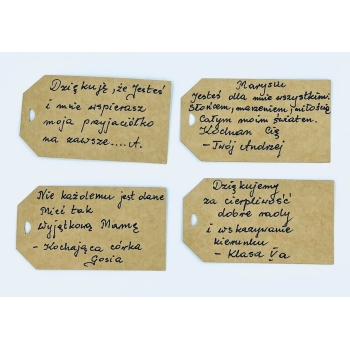 Dziękuję, że Jesteś
i mnie wspierasz
moja przyjaciółko
na zawsze....A.
Marysiu
Jesteś dla mnie wszystkim.
Słońcem, marzeniem, miłością
Całym moim światem.
Kocham Cię
- Twój Andrzej
Nie każdemu jest dane
Mieć tak
wyjątkową Mamę
- Kochająca córka
Gosia
Dziękujemy
za cierpliwość
dobre rady
i wskazywanie
kierunku
- Klasa Va